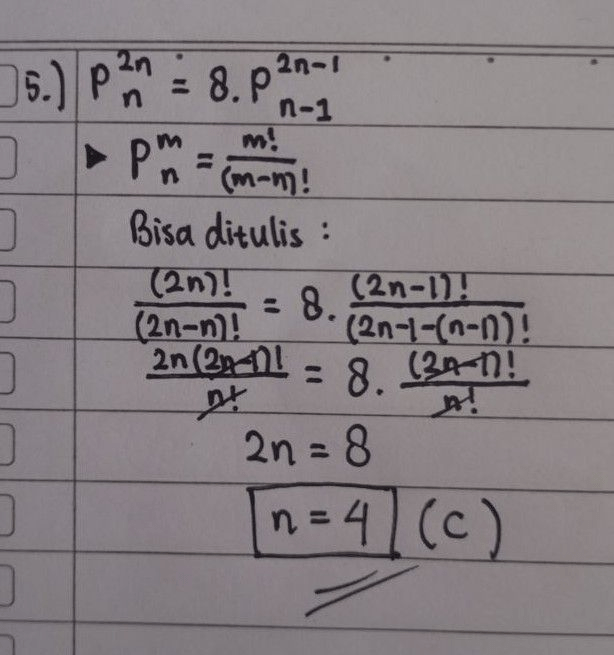 5.) P^{2n}_{n} = 8. P^{2n-1}_{n-1}
▶ P^{m}_{n} = \frac{m!}{(m-n)!}
Bisa ditulis :
\frac{(2n)!}{(2n-n)!} = 8. \frac{(2n-1)!}{(2n-1-(n-1))!}
\frac{2n(2n-1)!}{n!} = 8. \frac{(2n-1)!}{n!}
2n = 8
n = 4 (C)